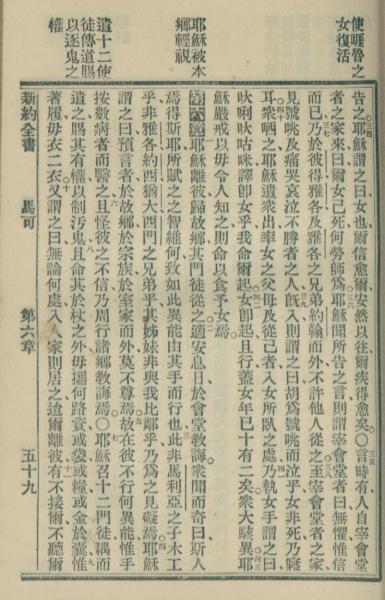 使睚魯之
女復活
耶穌被本
鄉輕視
遣十二使
徒傳道賜
以逐鬼之
權
告之耶穌謂之曰女也爾信愈爾安然以往爾疾得愈矣〇言時有人自宰會堂
者之家來曰爾女已死何勞師爲耶穌聞所告之言則謂宰會堂者曰無懼惟信
而已乃於彼得雅各及雅各之兄弟約翰而外不許他人從之至宰會堂者之家
見號咷及痛哭哀泣不勝者之人旣入則謂之曰胡爲號咷而泣乎女非死乃寢
耳衆哂之耶穌遣衆出率女之父母及從己者入女所臥之處乃執女手謂之曰
譯卽女乎我命爾起女卽起且行蓋女年已十有二矣衆大駭異耶
穌嚴戒以毋令人知之則命以食予女焉
第六章耶穌離彼歸故鄉其門徒從之適安息日於會堂敎誨衆聞而奇曰斯人
焉得斯耶所賦之之智維何致如此異能由其手而行也此非馬利亞之子木工
乎非雅各約西猶大西門之兄弟乎其姊妹非與我比鄰乎乃爲之見礙焉耶穌
謂之曰預言者於故鄉於宗族於室家而外莫不尊焉故在彼不行何異能惟手
按數病者而醫之且怪彼之不信乃周行諸鄉敎誨焉〇耶穌召十二門徒耦而
遣之賜其有權以制污鬼且命其於杖之外毋攜何路資或袋或糧或金於囊惟
著履毋衣二衣又謂之曰無論何處入人家則居之迨爾離彼有不接爾不聽爾
新約全書 馬可 第六章 五十九